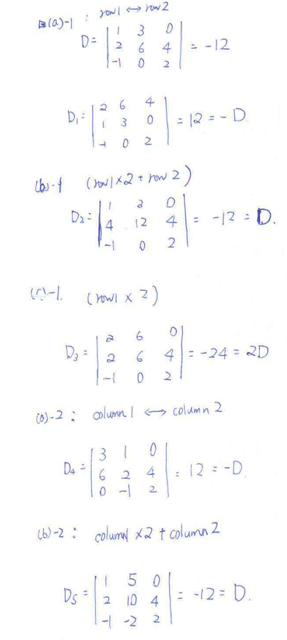 (a)-1 : row1 ↔ row2
D = | 1 3 0 |
| 2 6 4 | = -12
| -1 0 2 |
D₁ = | 2 6 4 |
| 1 3 0 | = 12 = -D
| -1 0 2 |
(b)-1 (row1 × 2 + row 2)
D₂ = | 1 3 0 |
| 4 12 4 | = -12 = D.
| -1 0 2 |
(c)-1. (row1 × 2)
D₃ = | 2 6 0 |
| 2 6 4 | = -24 = 2D
| -1 0 2 |
(a)-2 : column 1 ↔ column 2
D₄ = | 3 1 0 |
| 6 2 4 | = 12 = -D
| 0 -1 2 |
(b)-2 : column1 × 2 + column 2
D₅ = | 1 5 0 |
| 2 10 4 | = -12 = D.
| -1 -2 2 |